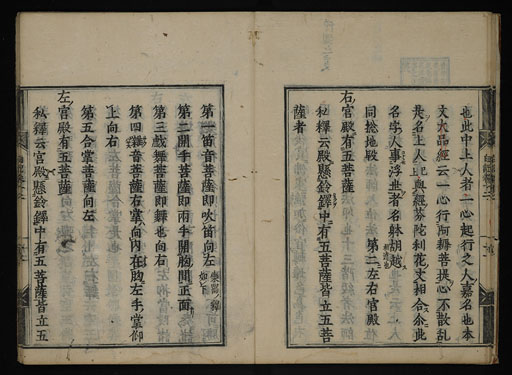 也此中上人者二心起行之人嘉名也本
文大品經云一心行阿耨菩提心不散乱
是名上人已與經芬陀利花文相合余此
名字人事浮世者名躰胡越
同捻地殿 第二左右官殿
右官殿有五菩薩
私釋云殿懸鈴鐸中有五菩薩皆立五
薩者
第一笛音菩薩即吹笛向左
第二開手菩薩即兩手開胸間正面
第三戯舞菩薩即舞也向右
第四音菩薩右掌向内在胸左手掌仰
上向右
第五合掌菩薩向左
左官殿有五菩薩
私釋云官殿懸鈴鐸中有五菩薩皆立五